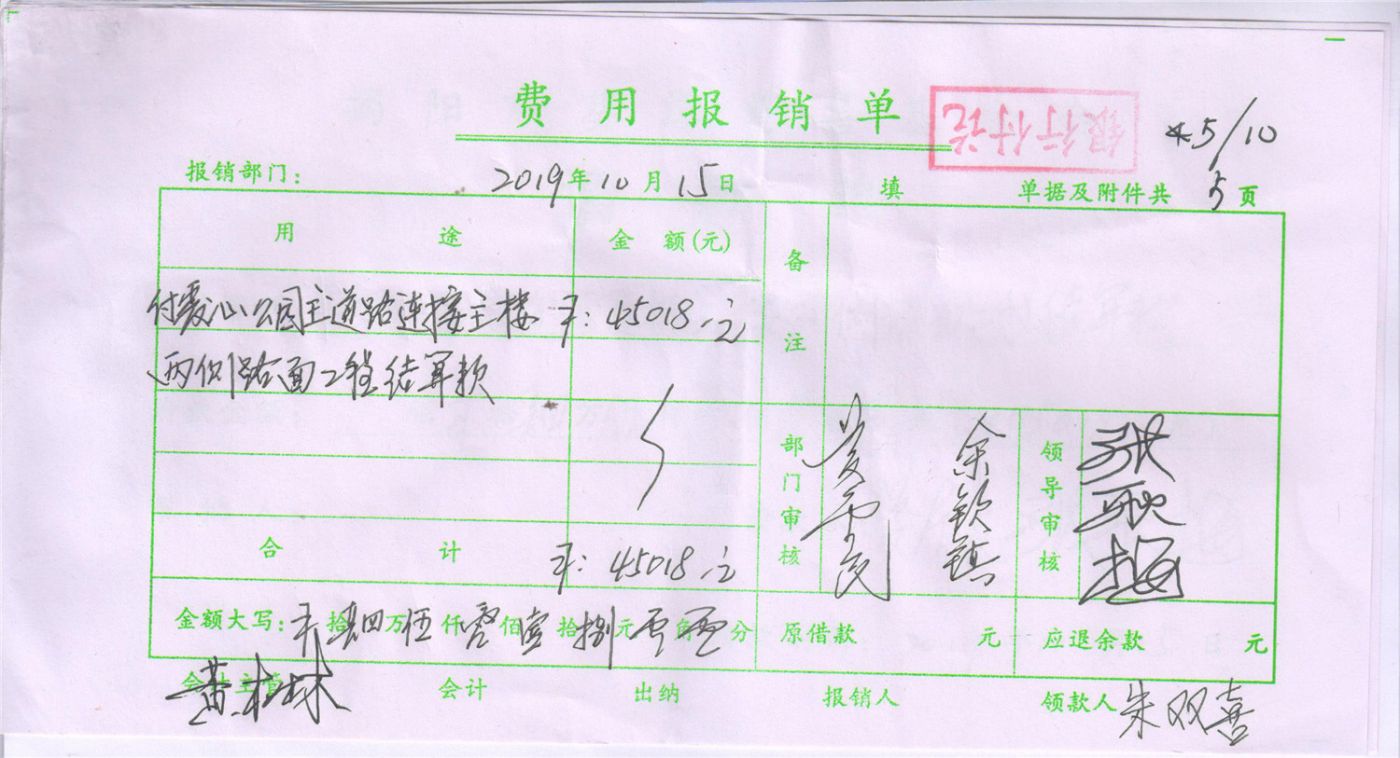 费用报销单
银行付讫
5/10
报销部门：
2019年10月15日
填
单据及附件共5页
用途
金额(元)
备注
付爱心公园主道路连接主楼
45018元
两侧路面工程结算款
部门审核
余钦镇
领导审核
张耿梅
合计
45018元
金额大写：
拾肆万伍仟零佰壹拾捌元零角零分
原借款
元
应退余款
元
会计主管
黄桂林
会计
出纳
报销人
领款人
朱双喜